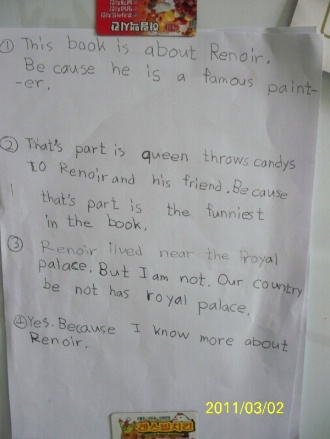 ① This book is about Renoir.
Be cause he is a famous paint-
-er.
② That's part is queen throws candys
to Renoir and his friend. Be cause
that's part is the funniest
in the book.
③ Renoir lived near the Royal
palace. But I am not. Our country
be not has royal palace.
④ Yes. Because I know more about
Renoir.
2011/03/02